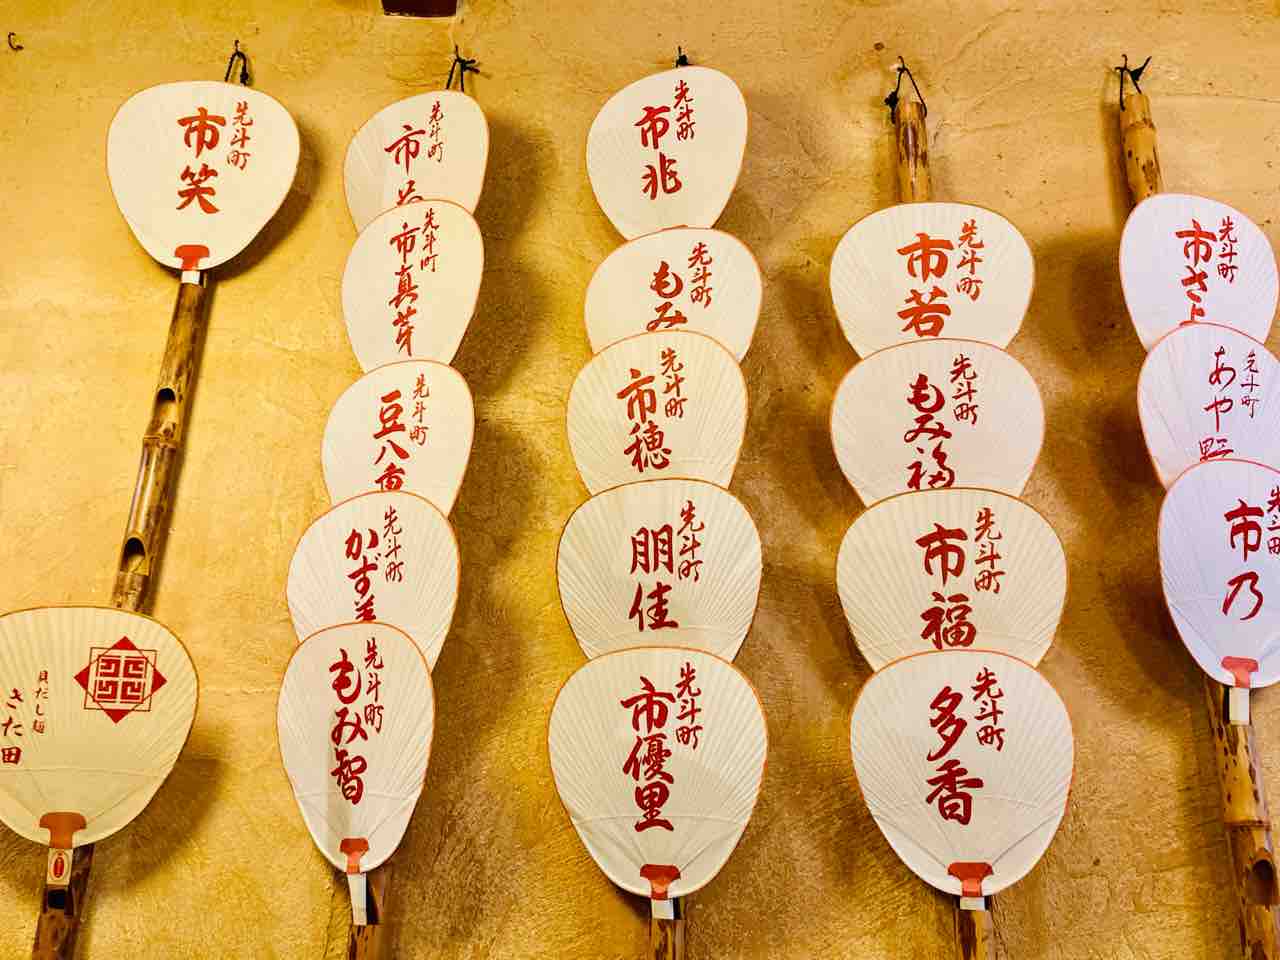 先斗町
市笑
貝だし麺
きた田
先斗町
市
先斗町
市真芽
先斗町
豆八重
先斗町
かず
先斗町
もみ智
先斗町
市兆
先斗町
もみ
先斗町
市穂
先斗町
朋佳
先斗町
市優里
先斗町
市若
先斗町
もみ福
先斗町
市福
先斗町
多香
先斗町
市さよ
先斗町
あや野
先斗町
市乃